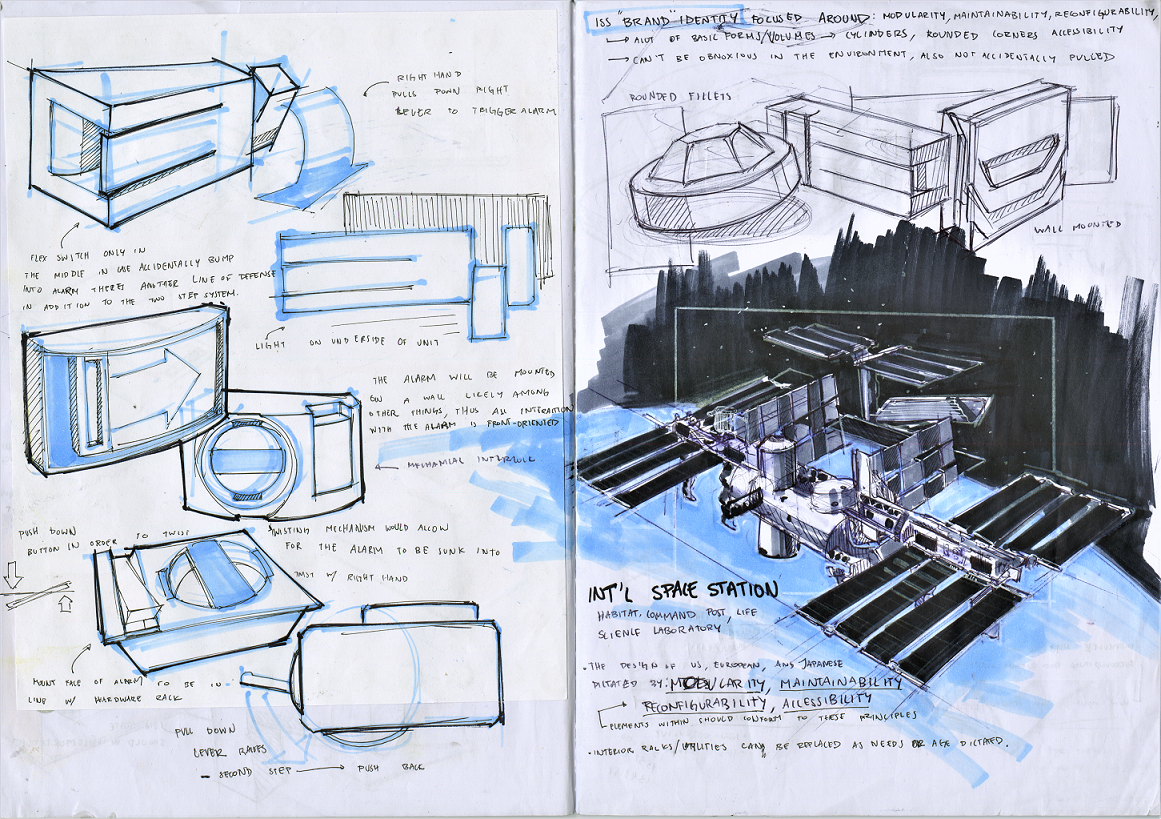 RIGHT HAND
PULLS DOWN RIGHT
LEVER TO TRIGGER ALARM
FLEX SWITCH ONLY IN
THE MIDDLE IN CASE ACCIDENTALLY BUMP
INTO ALARM THERES ANOTHER LINE OF DEFENSE
IN ADDITION TO THE TWO STEP SYSTEM.
LIGHT ON UNDERSIDE OF UNIT
THE ALARM WILL BE MOUNTED
ON A WALL LIKELY AMONG
OTHER THINGS, THUS ALL INTERATION
WITH THE ALARM IS FRONT-ORIENTED
MECHANICAL INTERLOCK
PUSH DOWN
BUTTON IN ORDER TO TWIST
TWISTING MECHANISM WOULD ALLOW
FOR THE ALARM TO BE SUNK INTO
TWIST W/ RIGHT HAND
MOUNT FACE OF ALARM TO BE IN
LINE W/ HARDWARE RACK
PULL DOWN
LEVER RAISES
- SECOND STEP → PUSH BACK
ISS "BRAND" IDENTITY FOCUSED AROUND: MODULARITY, MAINTAINABILITY, RECONFIGURABILITY,
→ ALOT OF BASIC FORMS/VOLUMES → CYLINDERS, ROUNDED CORNERS ACCESSIBILITY
→ CAN'T BE OBNOXIOUS IN THE ENVIRONMENT, ALSO NOT ACCIDENTALLY PULLED
ROUNDED FILLETS
WALL MOUNTED
INT'L SPACE STATION
HABITAT, COMMAND POST, LIFE
SCIENCE LABORATORY
• THE DESIGN OF US, EUROPEAN, AND JAPANESE
DICTATED BY: MODULARITY, MAINTAINABILITY
RECONFIGURABILITY, ACCESSIBILITY
ELEMENTS WITHIN SHOULD CONFORM TO THESE PRINCIPLES
• INTERIOR RACKS/UTILITIES CAN BE REPLACED AS NEEDS OR AGE DICTATED.